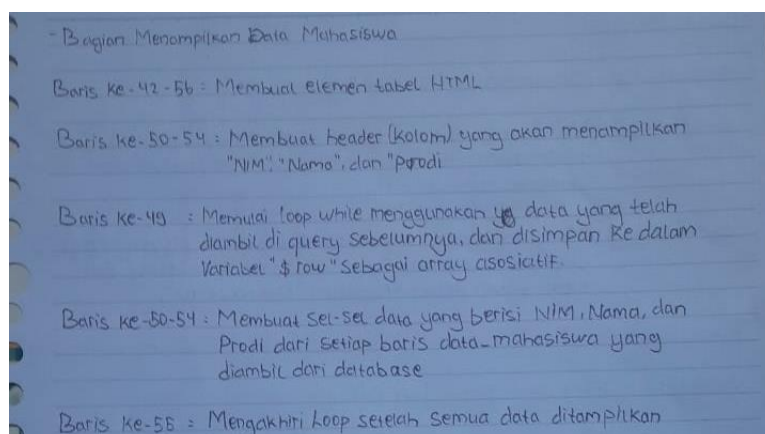 - Bagian Menampilkan Data Mahasiswa
Baris Ke-42-56 : Membuat elemen tabel HTML
Baris Ke-50-54 : Membuat header (kolom) yang akan menampilkan
"NIM", "Nama", dan "Prodi
Baris Ke-49 : Memulai loop while menggunakan data yang telah
diambil di query sebelumnya, dan disimpan Ke dalam
Variabel "$row" sebagai array asosiatif.
Baris Ke-50-54 : Membuat sel-sel data yang berisi NIM, Nama, dan
Prodi dari setiap baris data_mahasiswa yang
diambil dari database
Baris Ke-55 : Mengakhiri Loop setelah semua data ditampilkan